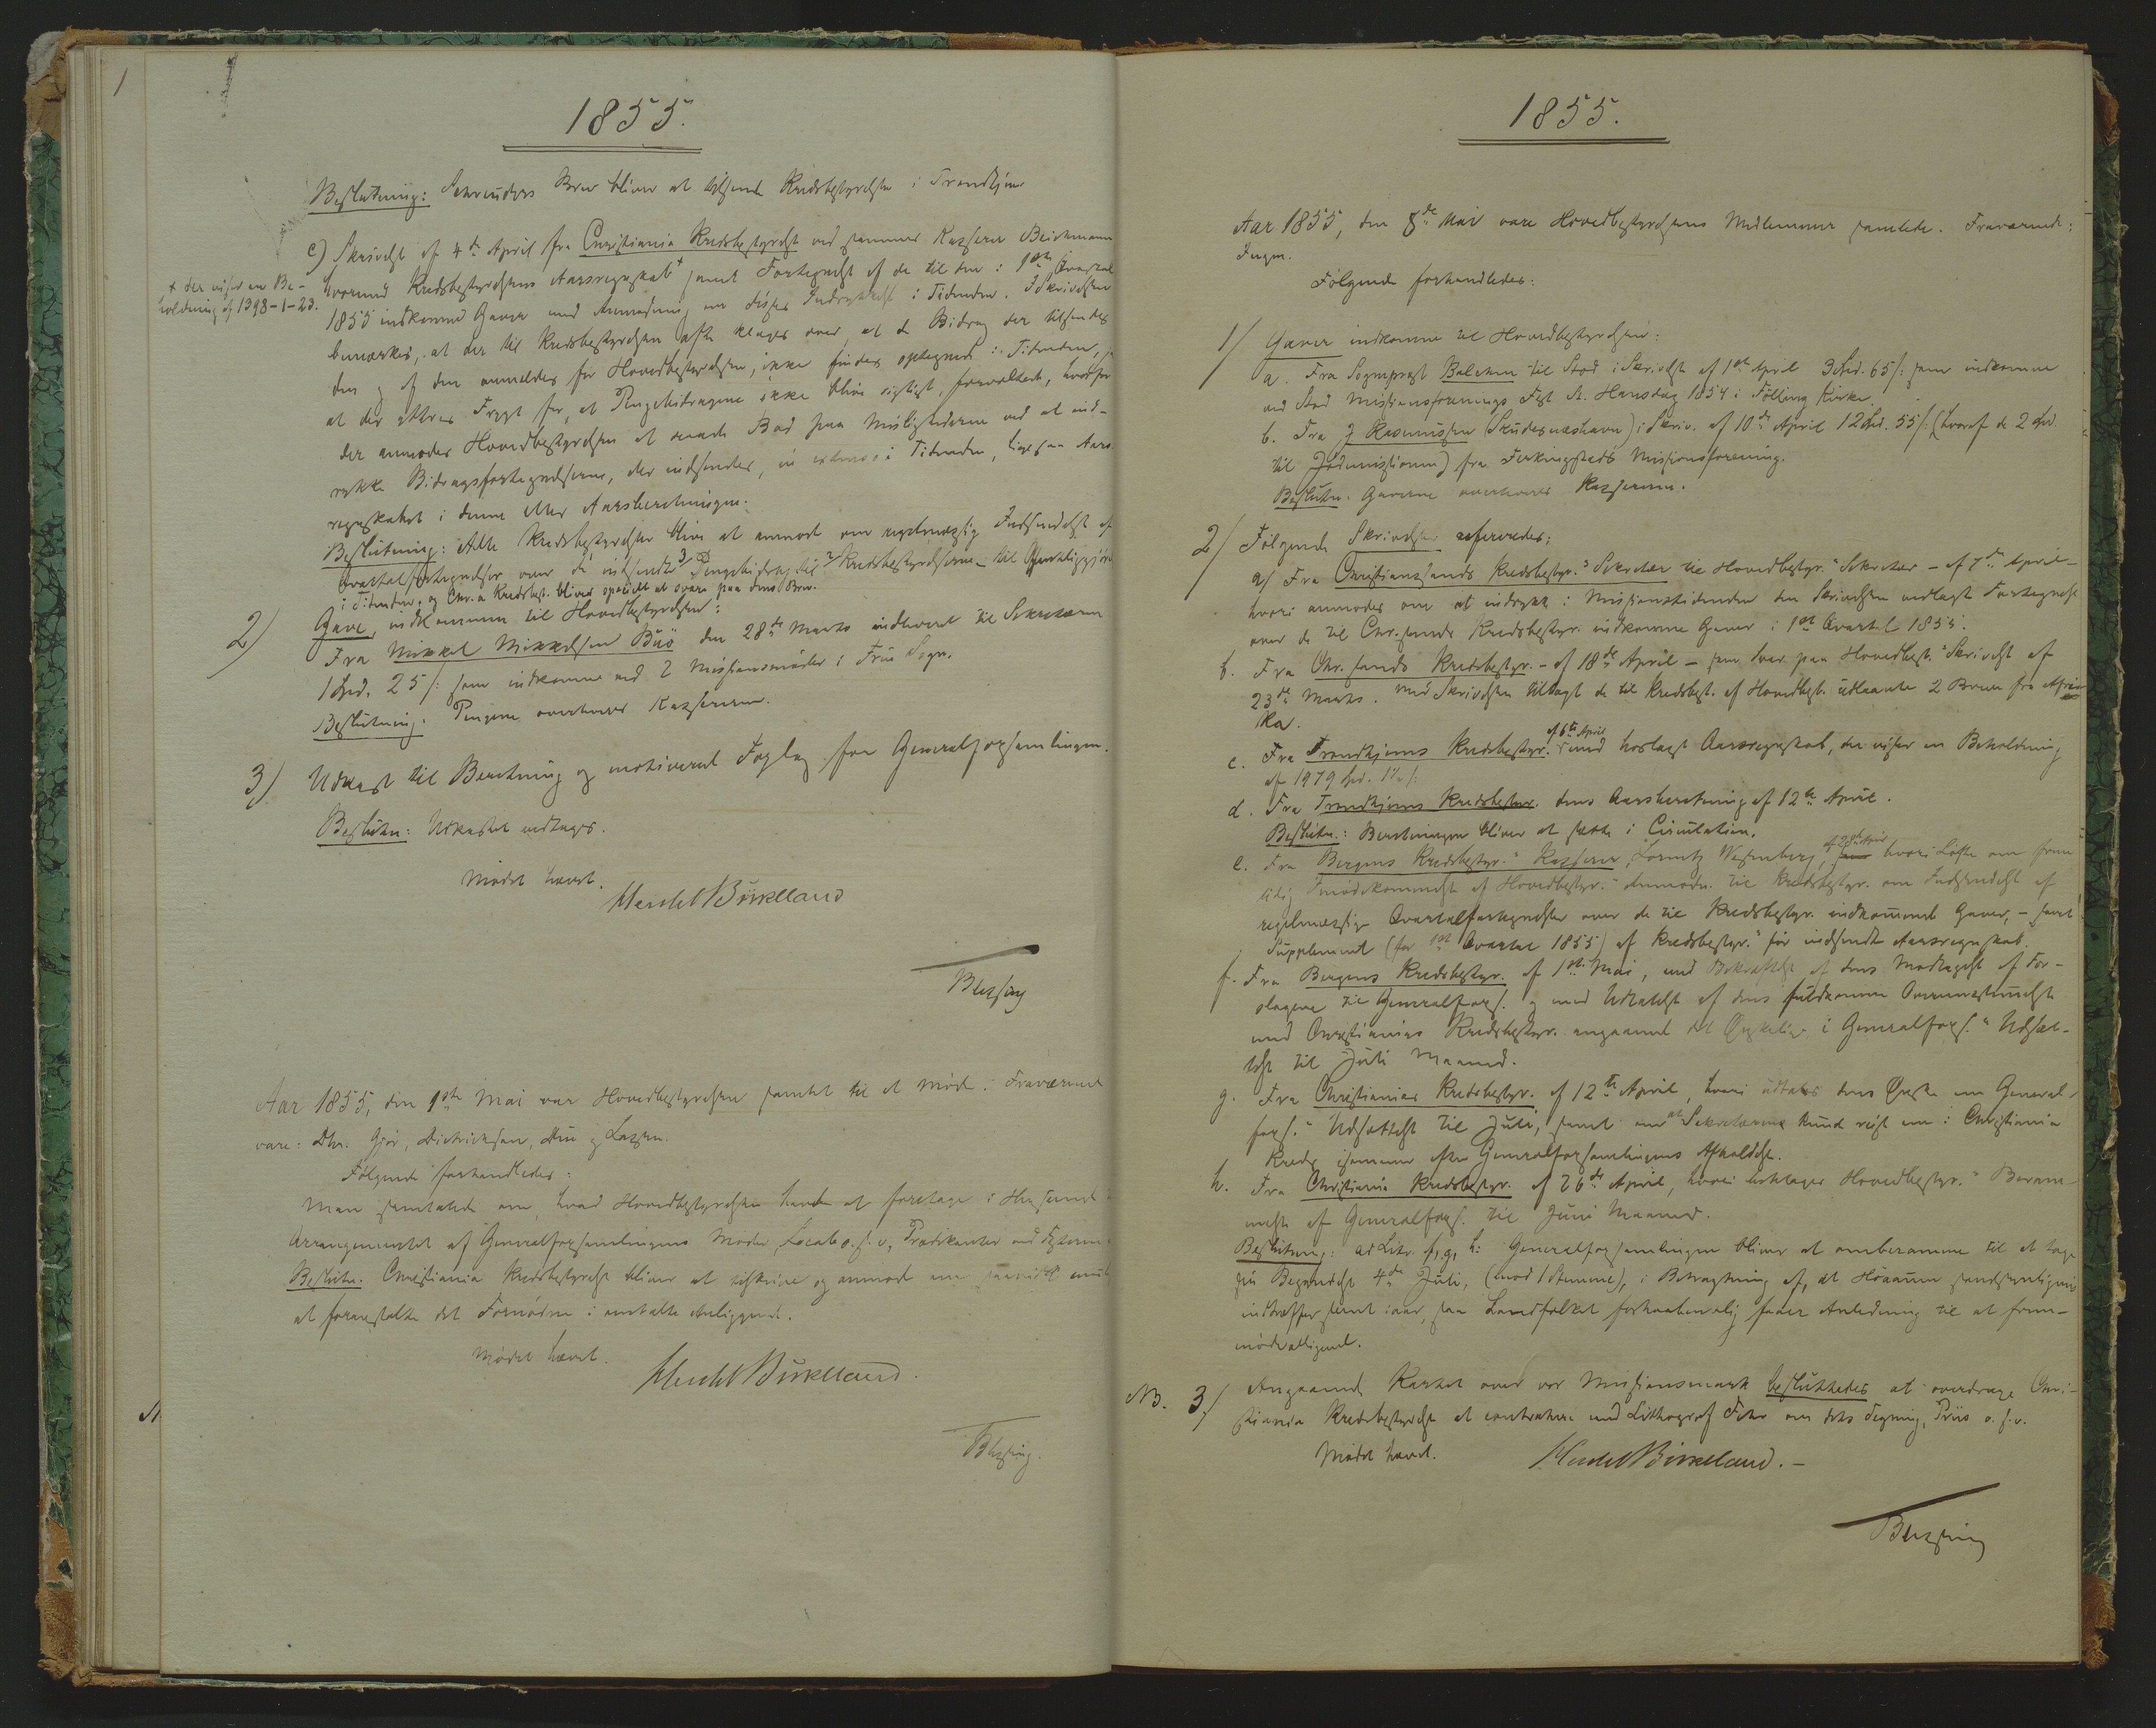 1855.
Beslutning: Schreuders Brev bliver at tilsende Kredsbestyrelsen i Trondhjem
c) Skrivelse af 4de April fra Christiania Kredsbestyrelse ved sammes Kasserer Beichmann
hvormed Kredsbestyrelsens Aarsregnskab + samt Fortegnelse af de til den i 1ste Qvartal
+ der viser en Be-
holdning af 1398-1-23.
1855 indkomne Gaver med Anmodning om disses Indrykkelse i Tidenden. I Skrivelsen
bemærkes, at der til Kredsbestyrelsen ofte klages over, at de Bidrag der tilsendes
den og af den anmeldes for Hovedbestyrelsen, ikke findes optegnede i Tidenden,
at der yttres Frygt for, at Pengebidragene ikke blive rigtigt forvaltede, hvorfor
der anmodes Hovedbestyrelsen at raade Bod paa Misligheder ved at ind-
rykke Bidragsfortegnelserne, der indsendes, in extenso i Tidenden, ligesaa Aars-
regnskabet i denne eller Aarsberetningen.
Beslutning: Alle Kredsbestyrelser blive at anmode om regelmæssig Indsendelse af
Qvartalsfortegnelser over de indsendte Pengebidrag til Kredsbestyrelserne til Offentliggjørelse
i Tidenden, og Chr.a Kredsbest. bliver specielt at svare paa dens Brev.
2) Gave, indkommen til Hovedbestyrelsen:
Fra Mikkel Mikkelsen Buö den 28de Marts indleveret til Sekretæren
1 Spd. 25 /: som indkomne ved 2 Missionsmöder i Frue Sogn.
Beslutning. Pengene overleveres Kassereren.
3) Udkast til Beretning og motiveret Forslag for Generalforsamlingen.
Beslutn: Udkastet vedtages.
Mödet hævet.
Hertel Birkeland
Blessing
Aar 1855, den 1ste Mai var Hovedbestyrelsen samlet til et Möde. Fraværende
vare: Dhr. Gjör, Dietrichson, Due og Lassen.
Fölgende forhandledes:
Man samtalede om, hvad Hovedbestyrelsen havde at foretage i Henseende
Arrangementet af Generalforsamlingens Möder, Locale o.s.v., Prædikanter ved Festerne
Beslutn. Christiania Kredsbestyrelse bliver at tilskrive og anmode om
at foranstalte det Fornödne i omtalte Anliggende.
Mödet hævet.
Hertel Birkeland.
Blessing.
1855.
Aar 1855, den 8de Mai vare Hovedbestyrelsens Medlemmer samlede. Fraværende:
Ingen.
Fölgende forhandledes:
1/ Gaver indkomne til Hovedbestyrelsen:
a. Fra Sogneprest Balchen til Stod i Skrivelse af 1ste April 3 Spd. 65 /: som indkomne
ved Stod Missionsforenings Fest St. Hansdag 1854 i Fölling Kirke.
b. Fra J Rasmussen (Skudesnæshavn) i Skriv. af 10de April 12 Spd. 55 /: (hvoraf de 2 Spd.
til Jödemissionen) fra Ferkingsteds Missionsforening.
Beslutn. Gaverne overleveres Kassereren.
2/ Fölgende Skrivelser refereredes:
a/ Fra Christianssands Kredsbestyr.s Sekretær til Hovedbestyr.s Sekretær - af 7de April -
hvori anmodes om at indrykke i Missionstidenden den Skrivelsen vedlagte Fortegnelse
over de til Chr.sands Kredsbestyr. indkomne Gaver i 1ste Qvartal 1855.
b. Fra Chr.sands Kredsbestyr. - af 18de April - som Svar paa Hovedbest.s Skrivelse af
23de Marts. Med Skrivelsen tilbagt de til Kredsbest. af Hovedbest. udlaante 2 Breve fra Afri-
ka.
c. Fra Trondhjems Kredsbestyr. af 6te April med hoslagt Aarsregnskab, der viser en Beholdning
af 1979 Spd. 1½ /:
d. Fra Trondhjems Kredsbestyr. dens Aarsberetning af 12te April.
Beslutn.: Beretningen bliver at sætte i Circulation.
e. Fra Bergens Kredsbestyr.s Kasserer, Lorentz Wesenberg, af 28de April hvori Löfte om frem
tidig Imödekommelse af Hovedbestyr.s Anmodn. til Kredsbestyr. om Indsendelse af
regelmæssige Qvartalfortegnelser over de til Kredsbestyr. indkomne Gaver, - samt
Supplement (for 1ste Qvartal 1855) af Kredsbestyr.s för indsendte Aarsregnskab.
f. Fra Bergens Kredsbestyr. af 1ste Mai, med Bekræftelse af dens Modtagelse af For-
slagene til Generalfors. og med Udtalelse af dens fuldkomne Overensstemmelse
med Christianias Kredsbestyr. angaaende det Önskelige i Generalfors.s Udsæt-
telse til Juli Maaned.
g. Fra Christianias Kredsbestyr. af 12te April, hvori udtales dens Önske om General-
fors.s Udsættelse til Juli, samt om at Sekretæren kunde reise om i Christiania
Kreds isommer efter Generalforsamlingens Afholdelse.
h. Fra Christiania Kredsbestyr. af 26de April, hvori beklages Hovedbestyr.s Beram-
melse af Generalfors. til Juni Maaned.
Beslutning: ad Litr. f, g, h: Generalforsamlingen bliver at omberamme til at tage
sin Begyndelse 4de Juli, (mod 1 Stemme), i Betragtning af, at Höaannen sandsynligviis
indtræffer seent iaar, saa Landfolket forhaabentlig faaer Anledning til at frem-
möde alligevel.
NB. 3/ Angaaende Kartet over vor Missionsmark besluttedes at overdrage Chri-
stiania Kredsbestyrelse at contrahere med Lithograf Fehr om dets Tegning, Priis o.s.v.
Mödet hævet.
Hertel Birkeland. -
Blessing